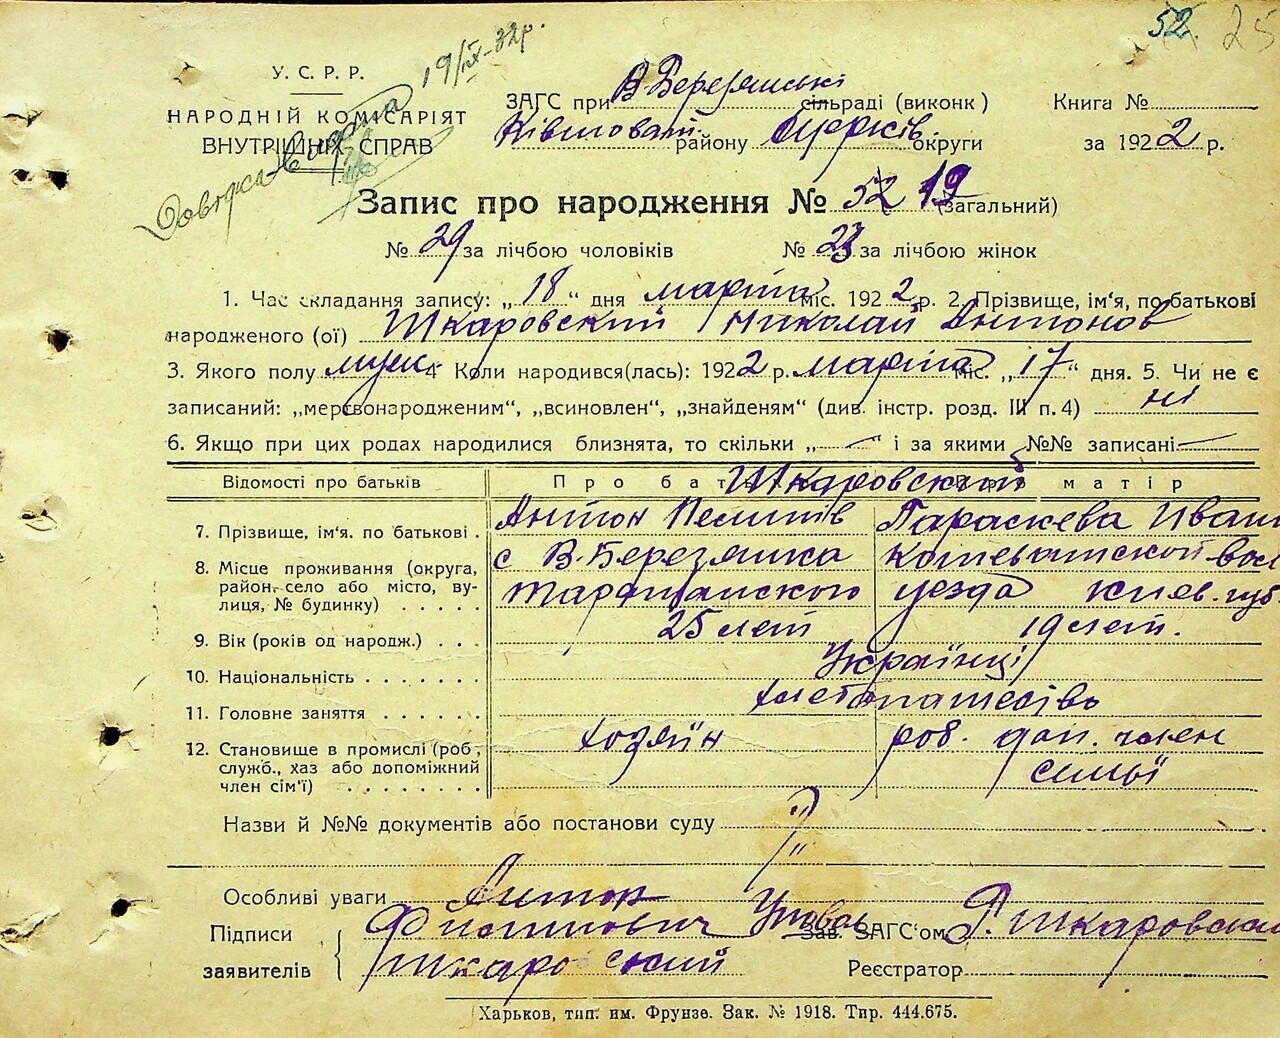 52. 25
19/IX-32р.
У. С. Р. Р.
НАРОДНІЙ КОМІСАРІЯТ
ВНУТРІШНІХ СПРАВ
Довідка видана
ЗАГС при В Березянські сільраді (виконк)
Ківшоват. району Б Церків. округи
Книга №
за 1922 р.
Запис про народження № 52 19 (загальний)
№ 29 за лічбою чоловіків № 23 за лічбою жінок
1. Час складання запису: „ 18 “ дня марта міс. 1922 р. 2. Прізвище, ім‘я, по батькові
народженого (ої) Шкаровский Николай Антонов
3. Якого полу муж. 4. Коли народився(лась): 1922 р. марта міс. „ 17 “ дня. 5. Чи не є
записаний: „мертвонародженим“, „всиновлен“, „знайденям“ (див. інстр. розд. III п. 4) ні
6. Якщо при цих родах народилися близнята, то скільки „ — “ і за якими №№ записані —
Відомості про батьків Про батька Про матір
Шкаровский
7. Прізвище, ім‘я, по батькові . Антон Пилипів Параскева Иван
8. Місце проживання (округа, район, село або місто, вулиця, № будинку) . . . . .
с В. Березянка
Таращанского уезда Киев. губ
9. Вік (років од народж.) . . . 25 лет 19 лет.
10. Національність . . . . . . . Українці
11. Головне заняття . . . . . . хлебопашество
12. Становище в промислі (роб., служб., хаз або допоміжний член сім‘ї) . . . . . . . .
хозяїн роб. доп. член
семьї
Назви й №№ документів або постанови суду
Особливі уваги
Підписи
заявителів
Антон
Филипович
Шкаровский
Зав. ЗАГС‘ом
Реєстратор
Харьков, тип. им. Фрунзе. Зак. № 1918. Тир. 444.675.